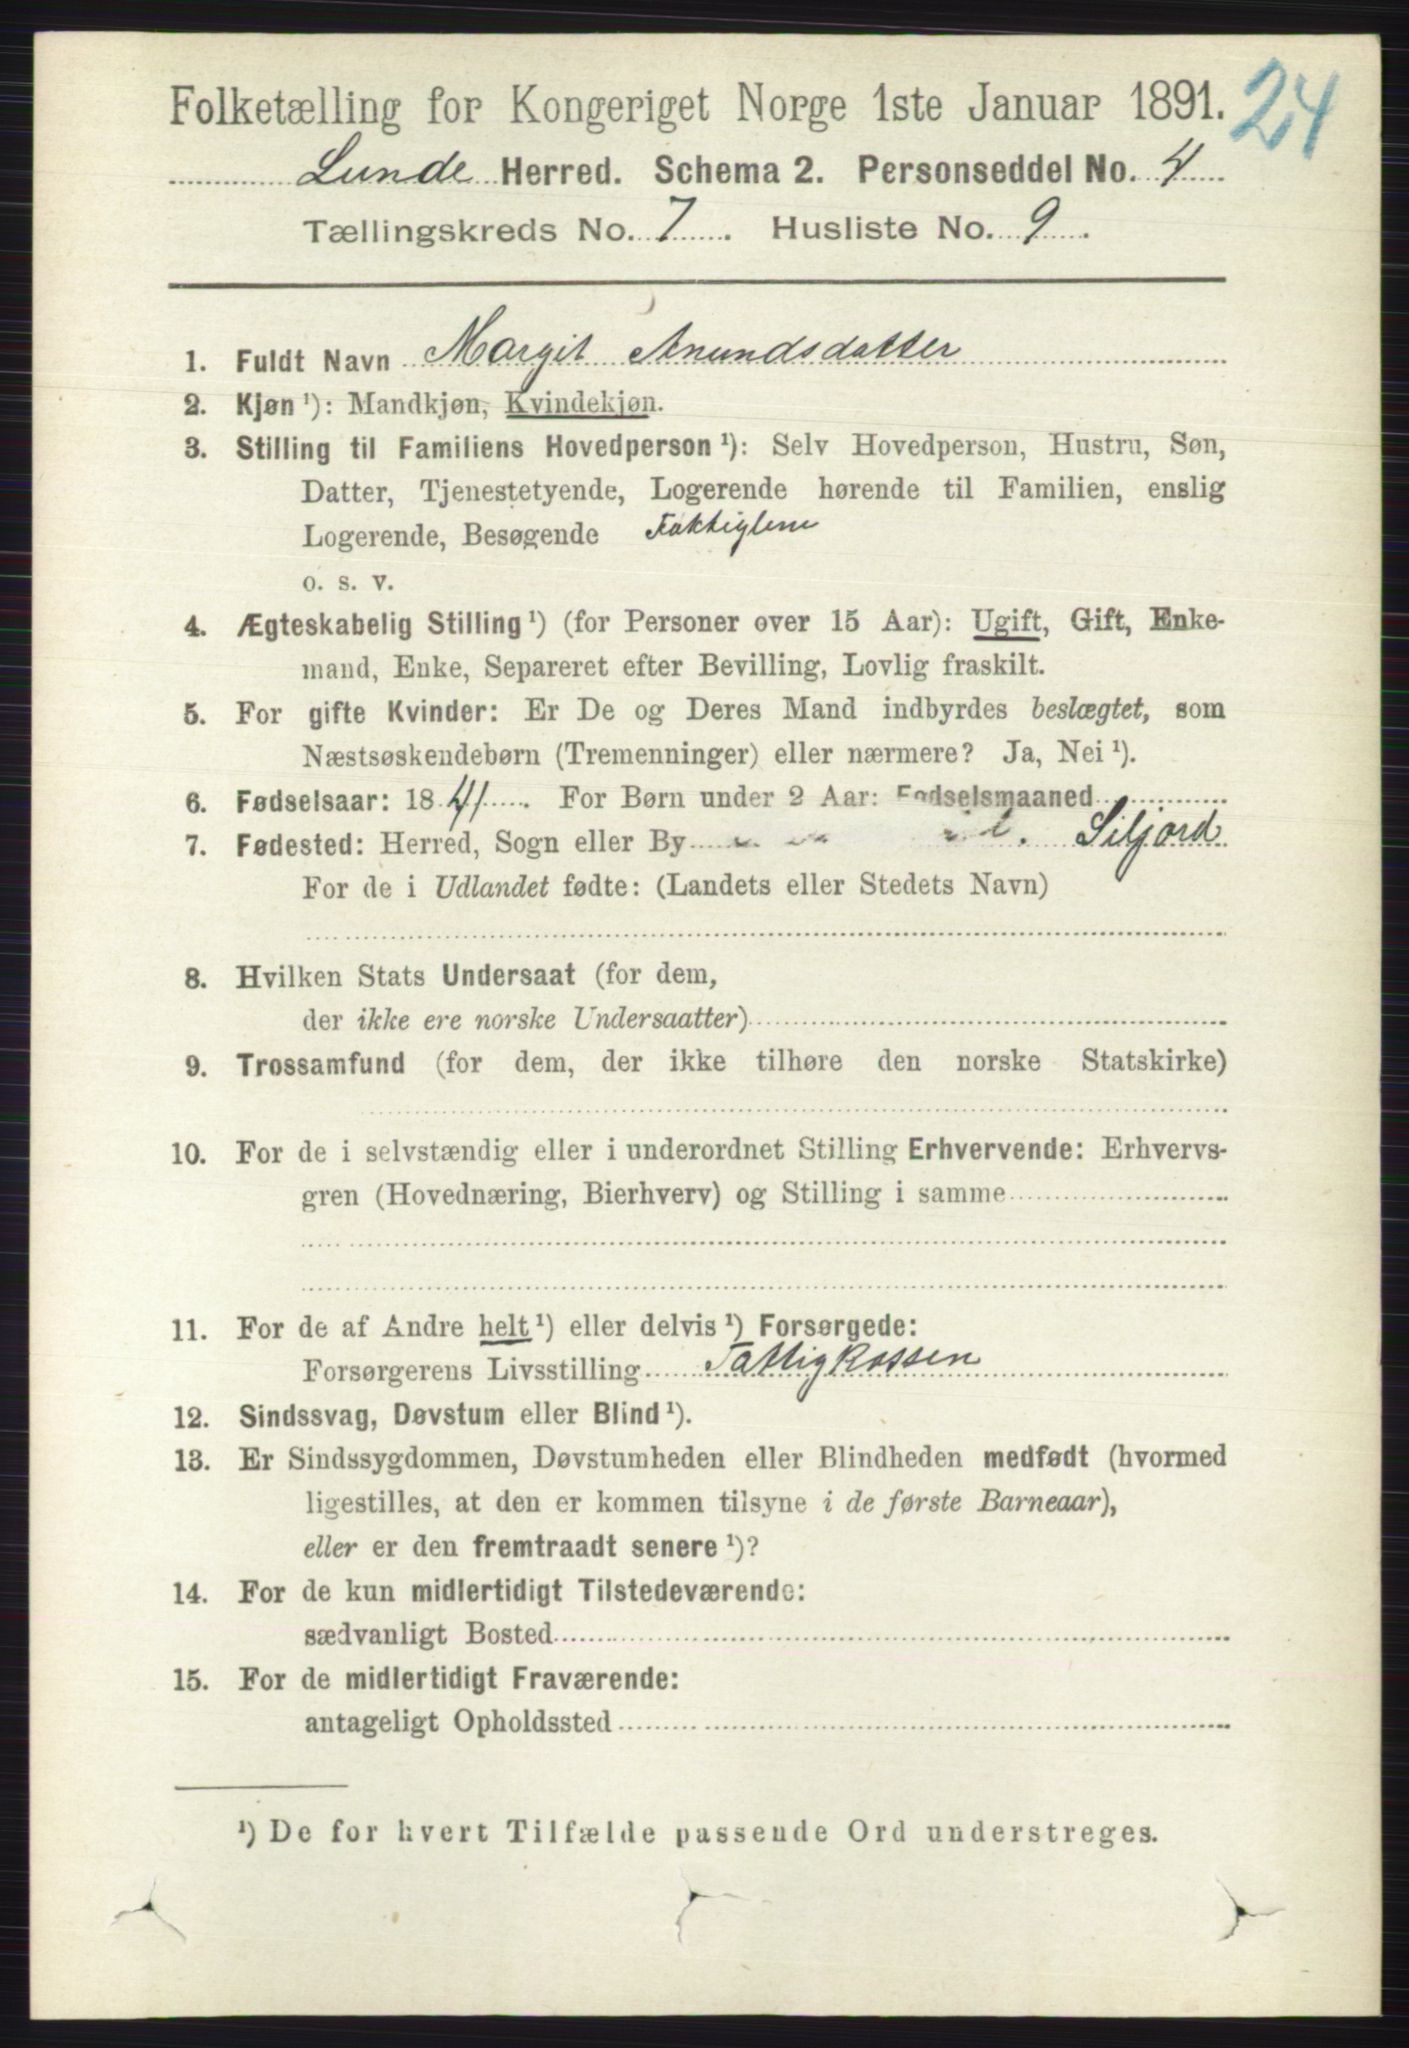 Folketælling for Kongeriget Norge 1ste Januar 1891. 24
Lunde Herred. Schema 2. Personseddel No. 4
Tællingskreds No. 7. Husliste No. 9.
1. Fuldt Navn Margit Anundsdatter
2. Kjøn ¹): Mandkjøn, Kvindekjøn.
3. Stilling til Familiens Hovedperson ¹): Selv Hovedperson, Hustru, Søn,
Datter, Tjenestetyende, Logerende hørende til Familien, enslig
Logerende, Besøgende
o. s. v.
4. Ægteskabelig Stilling ¹) (for Personer over 15 Aar): Ugift, Gift, Enke-
mand, Enke, Separeret efter Bevilling, Lovlig fraskilt.
5. For gifte Kvinder: Er De og Deres Mand indbyrdes beslægtet, som
Næstsøskendebørn (Tremenninger) eller nærmere? Ja, Nei ¹).
6. Fødselsaar: 1841. For Børn under 2 Aar: Fødselsmaaned
7. Fødested: Herred, Sogn eller By Siljord
For de i Udlandet fødte: (Landets eller Stedets Navn)
8. Hvilken Stats Undersaat (for dem,
der ikke ere norske Undersaatter)
9. Trossamfund (for dem, der ikke tilhøre den norske Statskirke)
10. For de i selvstændig eller i underordnet Stilling Erhvervende: Erhvervs-
gren (Hovednæring, Bierhverv) og Stilling i samme
11. For de af Andre helt ¹) eller delvis ¹) Forsørgede:
Forsørgerens Livsstilling Fattigkassen
12. Sindssvag, Døvstum eller Blind ¹).
13. Er Sindssygdommen, Døvstumheden eller Blindheden medfødt (hvormed
ligestilles, at den er kommen tilsyne i de første Barneaar),
eller er den fremtraadt senere ¹)?
14. For de kun midlertidigt Tilstedeværende:
sædvanligt Bosted
15. For de midlertidigt Fraværende:
antageligt Opholdssted
¹) De for hvert Tilfælde passende Ord understreges.